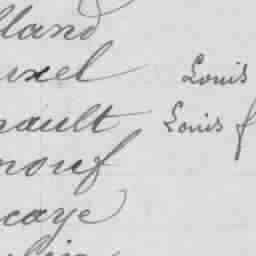 lland
uxel Louis
nault Louis f
nouf
caye